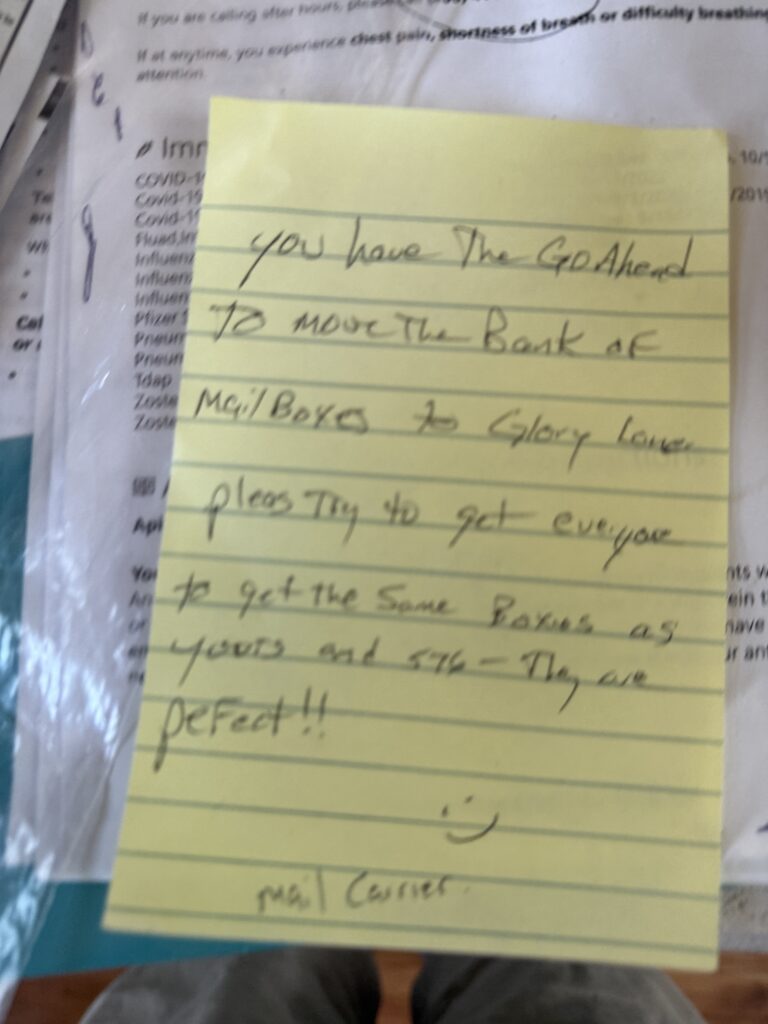 If you are calling after hours,
If at anytime, you experience chest pain, shortness of breath or difficulty breathing
attention.
COVID-1
Covid-19
Covid-1
Influen
Influen
Influen
Pneun
Tdap
Zoste
Zoste
You have The Go Ahead
To move The Bank of
Mail Boxes to Glory
pleas Try to get everyone
to get The Same Boxes as
yours and 576 - They are
pefect!!
:)
Mail Carrier